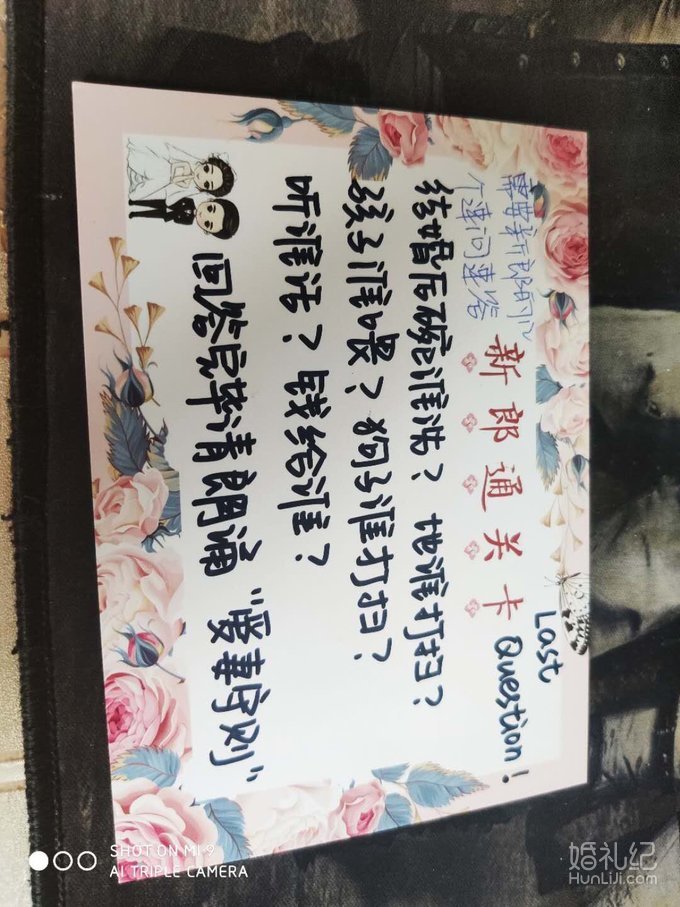 需要新郎
个连问速答
新郎通关卡
Last
Question!
结婚后碗谁洗？地谁打扫？
孩子谁喂？狗子谁打扫？
听谁话？钱给谁？
回答完毕请朗诵“爱妻守则”
SHOT ON MI 9
AI TRIPLE CAMERA
婚礼纪
HunLiJi.com